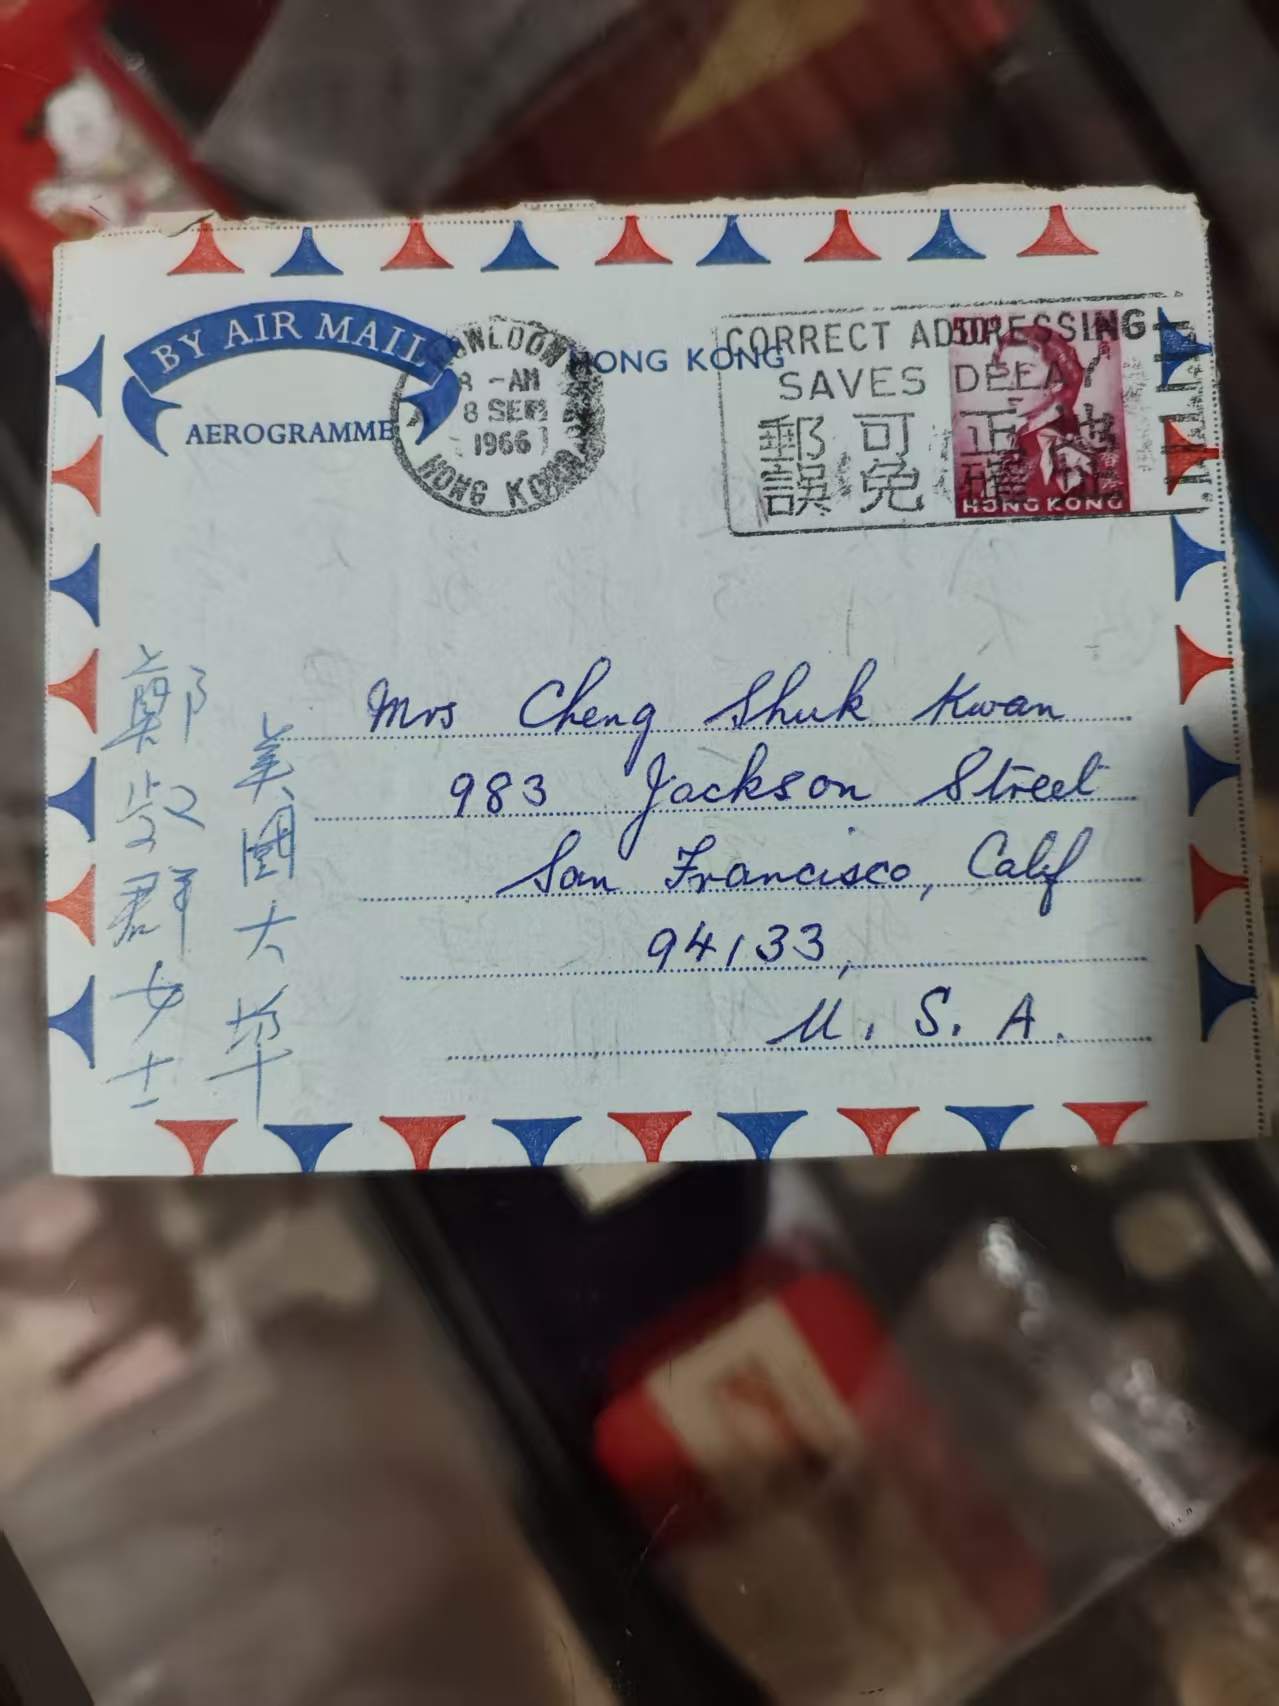 BY AIR MAIL
AEROGRAMME
KOWLOON
8 -AM
8 SEP
1966
HONG KONG
HONG KONG
CORRECT ADDRESSING
SAVES DELAY
郵 可 正 地
誤 免 確 址
50¢
香港
HONG KONG
Mrs Cheng Shuk Kwan
983 Jackson Street
San Francisco, Calif
94133,
U. S. A.
美國大埠
鄭淑群女士